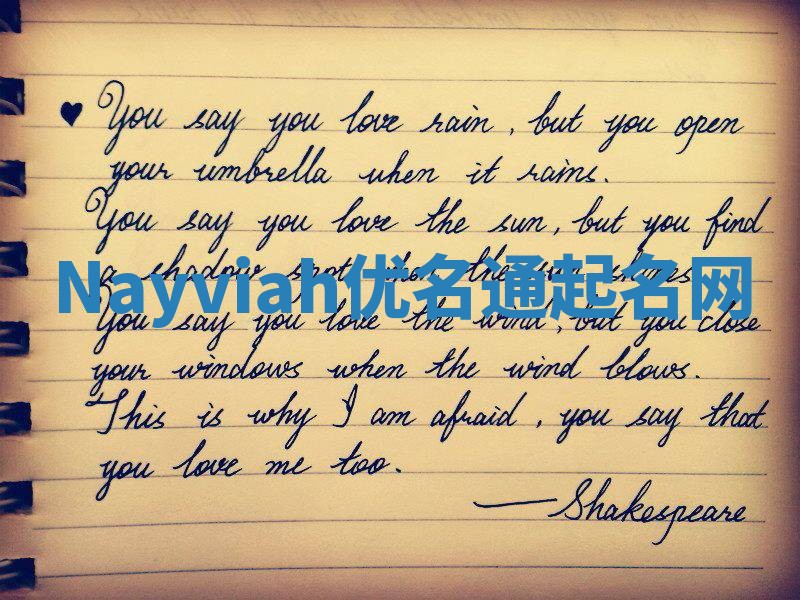 ♥ You say you love rain, but you open
your umbrella when it rains.
You say you love the sun, but you find
a shadow spot when the sun shines.
Nayviah优名通起名网
You say you love the wind, but you close
your windows when the wind blows.
This is why I am afraid, you say that
you love me too.
—Shakespeare